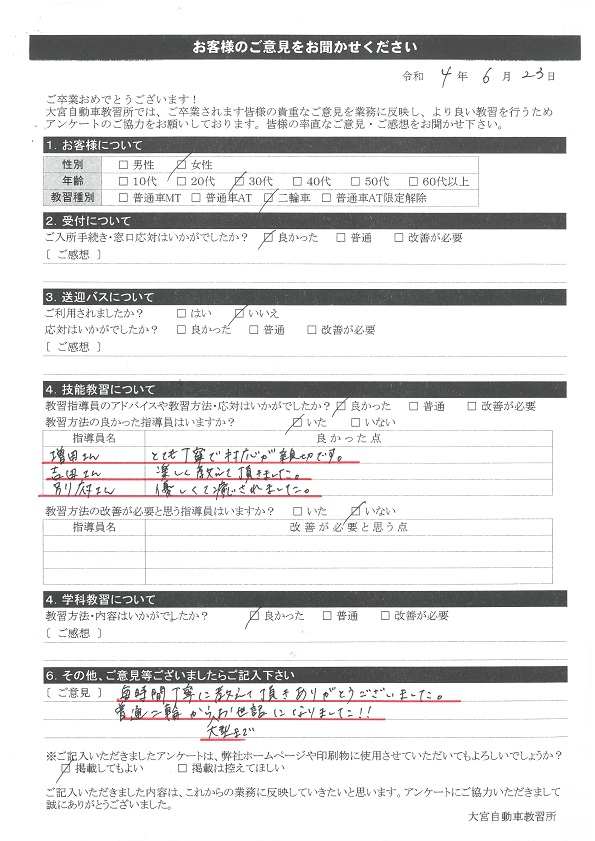 お客様のご意見をお聞かせください
令和 4 年 6 月 23 日
ご卒業おめでとうございます！
大宮自動車教習所では、ご卒業されます皆様の貴重なご意見を業務に反映し、より良い教習を行うため
アンケートのご協力をお願いしております。皆様の率直なご意見・ご感想をお聞かせ下さい。
1. お客様について
性別 □ 男性 ☑ 女性
年齢 □ 10代 □ 20代 ☑ 30代 □ 40代 □ 50代 □ 60代以上
教習種別 □ 普通車MT □ 普通車AT ☑ 二輪車 □ 普通車AT限定解除
2. 受付について
ご入所手続き・窓口応対はいかがでしたか？ ☑ 良かった □ 普通 □ 改善が必要
[ ご感想 ]
3. 送迎バスについて
ご利用されましたか？ □ はい ☑ いいえ
応対はいかがでしたか？ □ 良かった □ 普通 □ 改善が必要
[ ご感想 ]
4. 技能教習について
教習指導員のアドバイスや教習方法・応対はいかがでしたか？ ☑ 良かった □ 普通 □ 改善が必要
教習方法の良かった指導員はいますか？ ☑ いた □ いない
指導員名 良かった点
増田さん とても丁寧で対応が親切です。
吉田さん 楽しく教えて頂きました。
別府さん 優しくて癒されました。
教習方法の改善が必要と思う指導員はいますか？ □ いた ☑ いない
指導員名 改善が必要と思う点
4. 学科教習について
教習方法・内容はいかがでしたか？ ☑ 良かった □ 普通 □ 改善が必要
[ ご感想 ]
6. その他、ご意見等ございましたらご記入下さい
[ ご意見 ] 毎時間丁寧に教えて頂きありがとうございました。
普通二輪からお世話になりました!!
大型まで
※ご記入いただきましたアンケートは、弊社ホームページや印刷物に使用させていただいてもよろしいでしょうか？
☑ 掲載してもよい □ 掲載は控えてほしい
ご記入いただきました内容は、これからの業務に反映していきたいと思います。アンケートにご協力いただきまして
誠にありがとうございました。
大宮自動車教習所